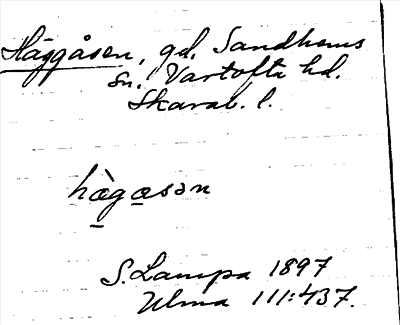 Häggåsen, gd. Sandhems
sn. Vartofta hd.
Skarab. l.
hàgasən
S. Lampa 1897
Ulma 111:437.